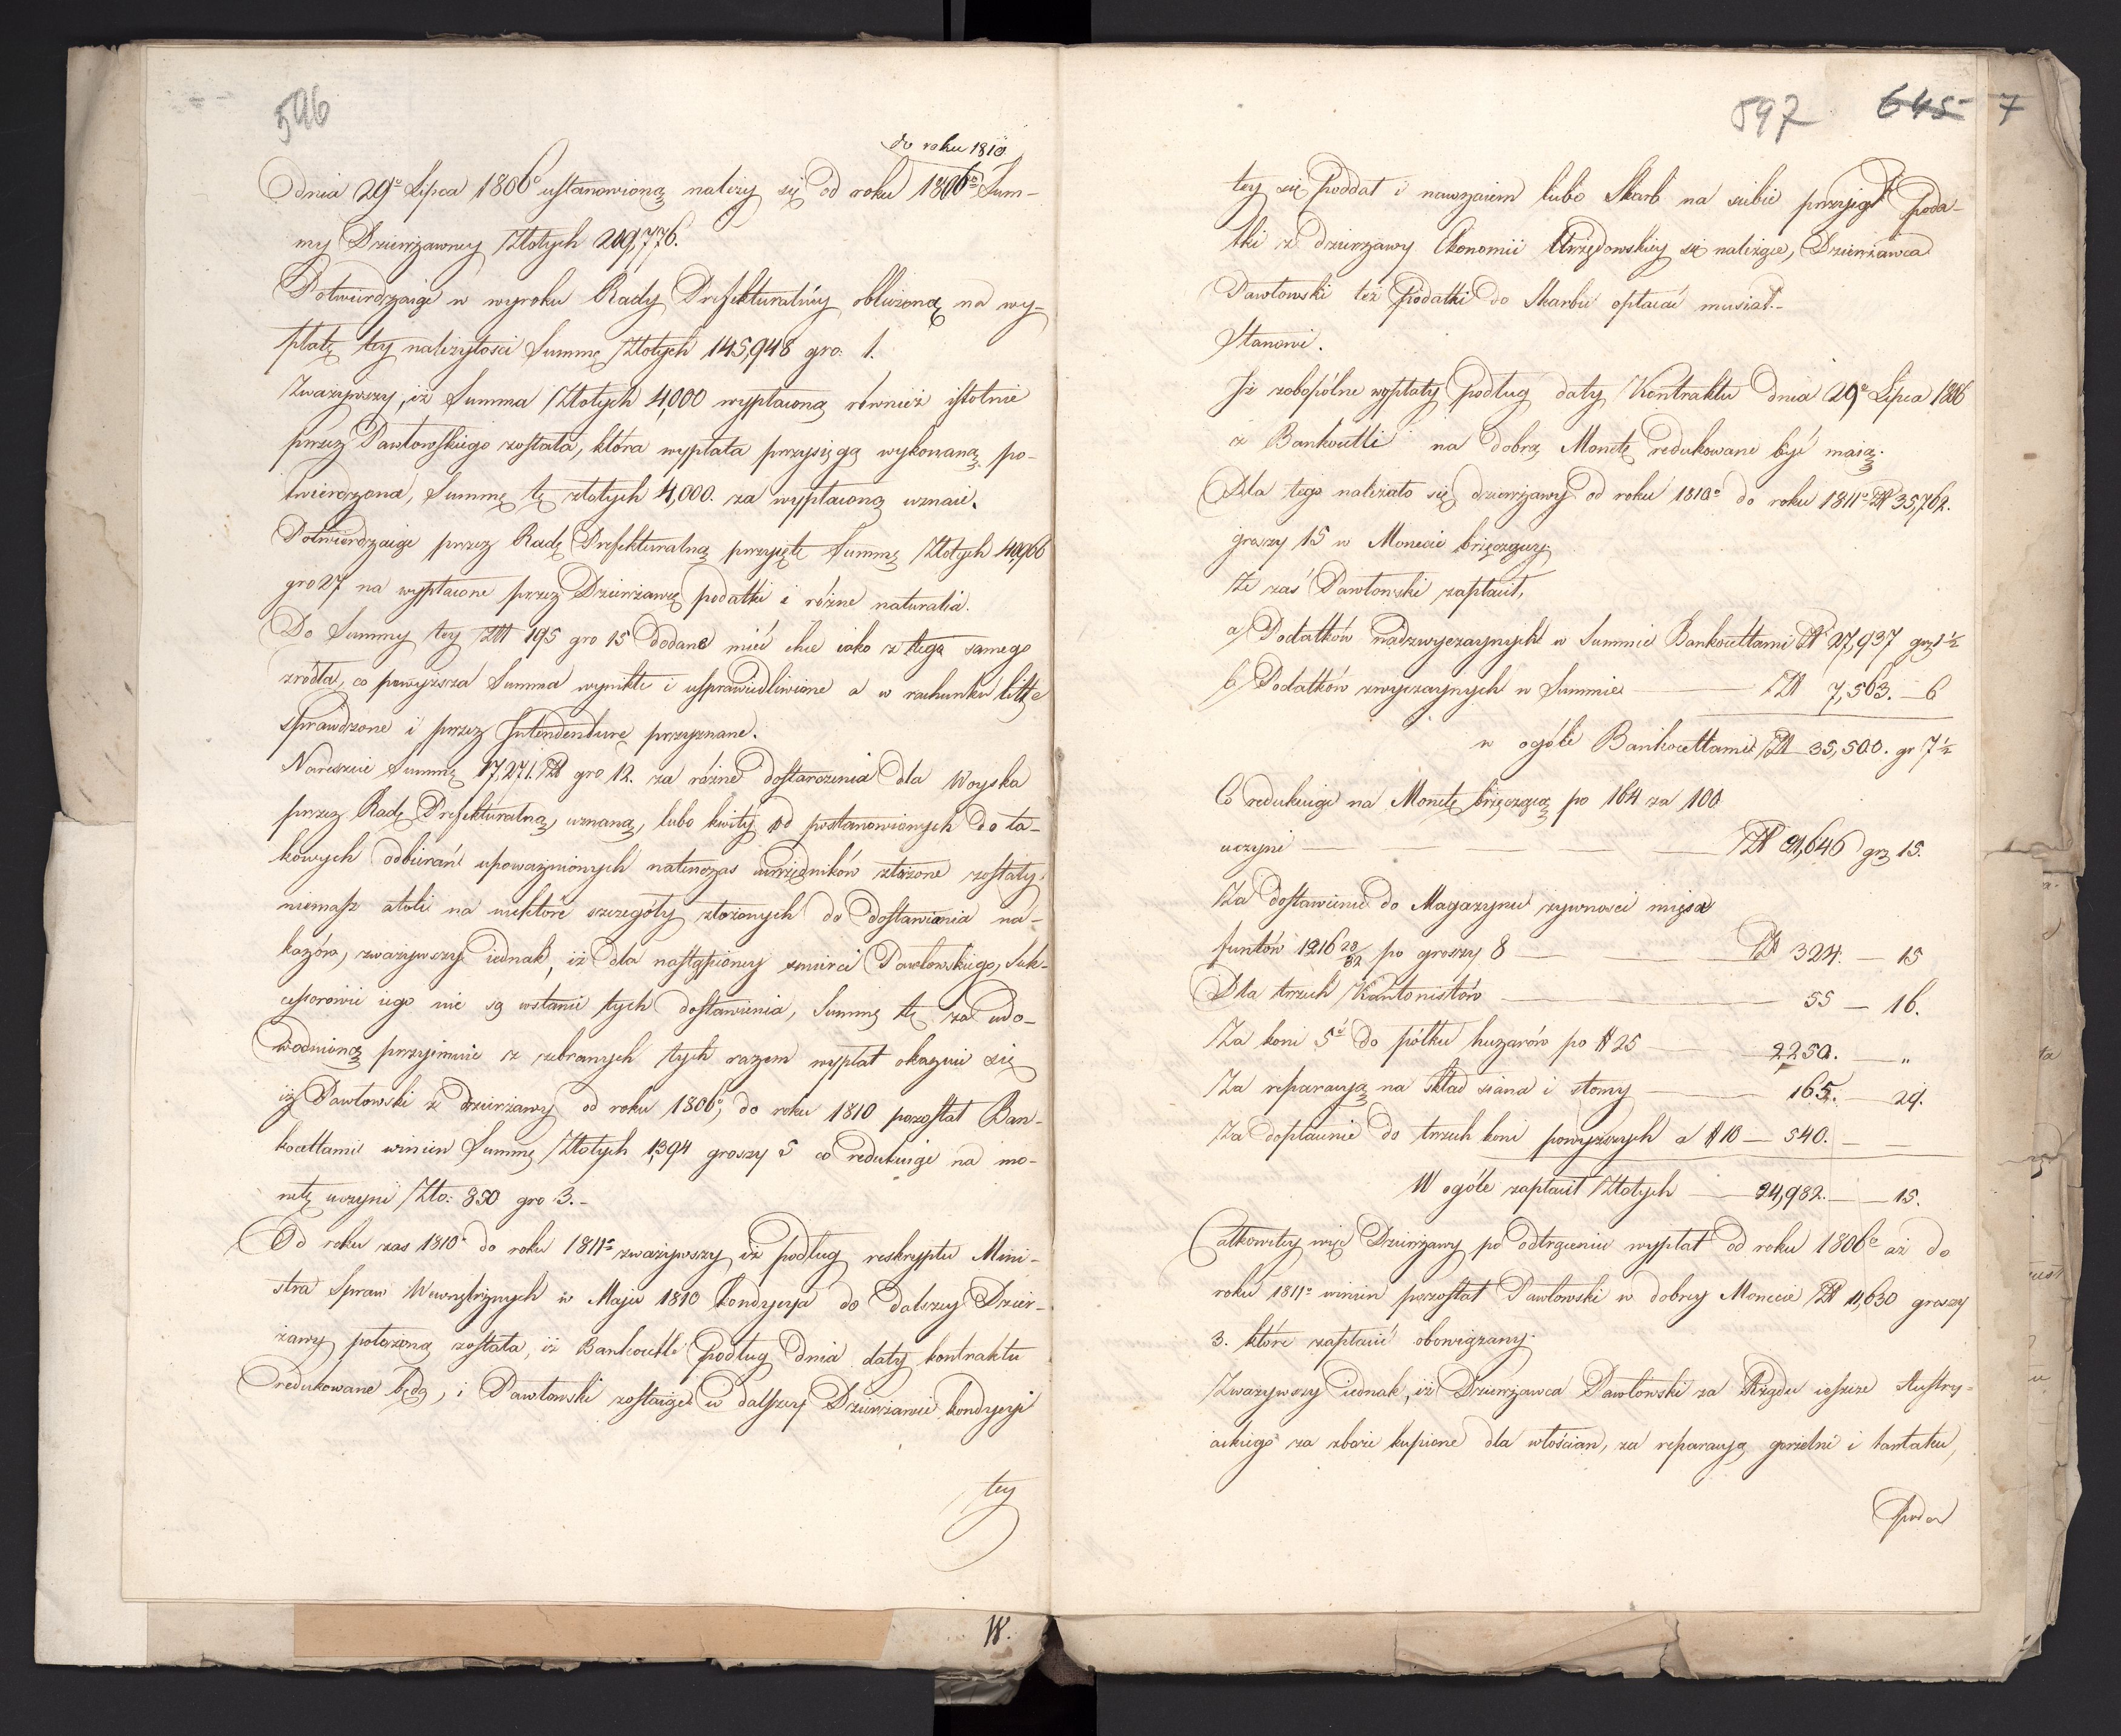 596
do roku 1810
dnia 29º Lipca 1806º ustanowioną należy się od roku 1806º Sum-
my Dzierżawney Złotych 209,776.
Potwierdzaiąc w wyroku Rady Prefekturalney obliczoną na wy-
płatę tey należytości Summę Złotych 145,948 gro: 1.
Zważywszy, iż Summa Złotych 4,000 wypłaconą również istotnie
przez Pawłowskiego została, która wypłata przysięgą wykonaną po-
twierdzona, Summę tę złotych 4,000. za wypłaconą uznaie.
Potwierdzaiąc przez Radę Prefekturalną przyięte Summę Złotych 40,966
gro 27 na wypłacone przez Dzierżawcę podatki i różne naturalia.
Do Summy tey Złł 195 gro 15 Dodane mieć chce iako z tego samego
zródła, co powyższa Summa wynikłe i usprawiedliwione a w rachunku
sprawdzone i przez Intendenturę przyznane.
Nareszcie Summę 17,271. Zł gro 12. za różne dostarczenia dla Woyska
przez Radę Prefekturalną, uznaną, lubo kwity od postanowionych do ta-
kowych odbierań upoważnionych natenczas urzędników złożone zostały,
niemasz atoli na niektóre szczegóły złożonych do dostawienia na-
kazów, zważywszy iednak, iż dla nastąpioney śmierci Pawłowskiego, Suk-
cessorowie iego nie są wstanie tych dostawienia, Summę tę za udo-
wodnioną przyimuie z zebranych tych razem wypłat okazuie się
iż Pawłowski z dzierżawy od roku 1806º, do roku 1810 pozostał Ban-
kocetlami winien Summę Złotych 1,394 groszy 5 co redukuiąc na mo-
netę uczyni Zło: 850 gro 3.-
Od roku zas 1810º do roku 1811º zważywszy iż podług reskryptu Mini-
stra Spraw Wewnętrznych w Maju 1810 kondycya do dalszey Dzier-
żawy położoną została, iż Bankocetle podług dnia daty kontraktu
redukowane będą, i Pawłowski zostaiąc w dalszey Dzierżawie kondycyi
tey
W.
597 645 7
tey się poddał i nawzaiem lubo Skarb na siebie przyiął poda-
tki z dzierżawy Ekonomii Urzędowskiey się należące, Dzierżawca
Pawłowski też podatki do Skarbu opłacać musiał.-
Stanowi.
Iż zobopólne wypłaty podług daty Kontraktu dnia 29º Lipca 1806
z Bankocetli na dobrą Monetę redukowane być maią.
Dla tego należało się dzierżawy od roku 1810º do roku 1811º Zł 35,762.
groszy 15 w Monecie brzęczącey.
Ze zaś Pawłowski zapłacił,
a/ Podatków nadzwyczaynych w Summie Bankocetlami Zł 27,937 gr 1½
b/ Podatków zwyczaynych w Summie — Zł 7,563. — 6
w ogóle Bankocetlami Zł 35,500. gr 7½
Co redukuiąc na Monetę brzęczącą po 164 za 100
uczyni — — — Zł 21,646 gr 15.
Za dostawienie do Magazynu żywności mięsa
funtów 1216 28/32 po groszy 8 — — Zł 324. — 15
Dla trzech Kantonistów — 55 — 16.
Za koni 5ć do półku huzarów po # 25 — 2250. — „
Za reparacyą na skład siana i słomy — 165. — 29.
Za dopłacenie do trzech koni powyższych a # 10 — 540. — —
W ogóle zapłacił Złotych — 24,982. — 15.
Całkowitey więc Dzierżawy po odtrąceniu wypłat od roku 1806º aż do
roku 1811º winien pozostał Pawłowski w dobrey Monecie Zł 11,630 groszy
3. które zapłacić obowiązany.
Zważywszy iednak, iż Dzierżawca Pawłowski za Rządu ieszcze Austry-
ackiego za zboże kupione dla włościan, za reparacyą gorzelni i tartaku,